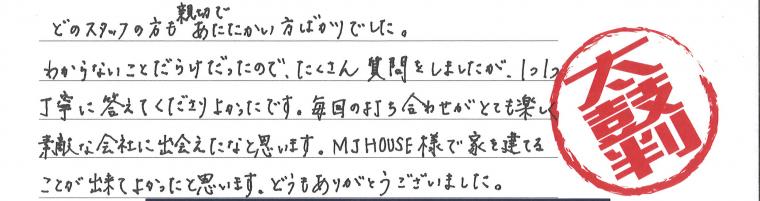 どのスタッフの方も親切であたたかい方ばかりでした。
わからないことだらけだったので、たくさん質問をしましたが、1つ1つ
丁寧に答えてくださりよかったです。毎回の打ち合わせがとても楽しく
素敵な会社に出会えたなと思います。MJHOUSE様で家を建てる
ことが出来てよかったと思います。どうもありがとうございました。
太鼓判